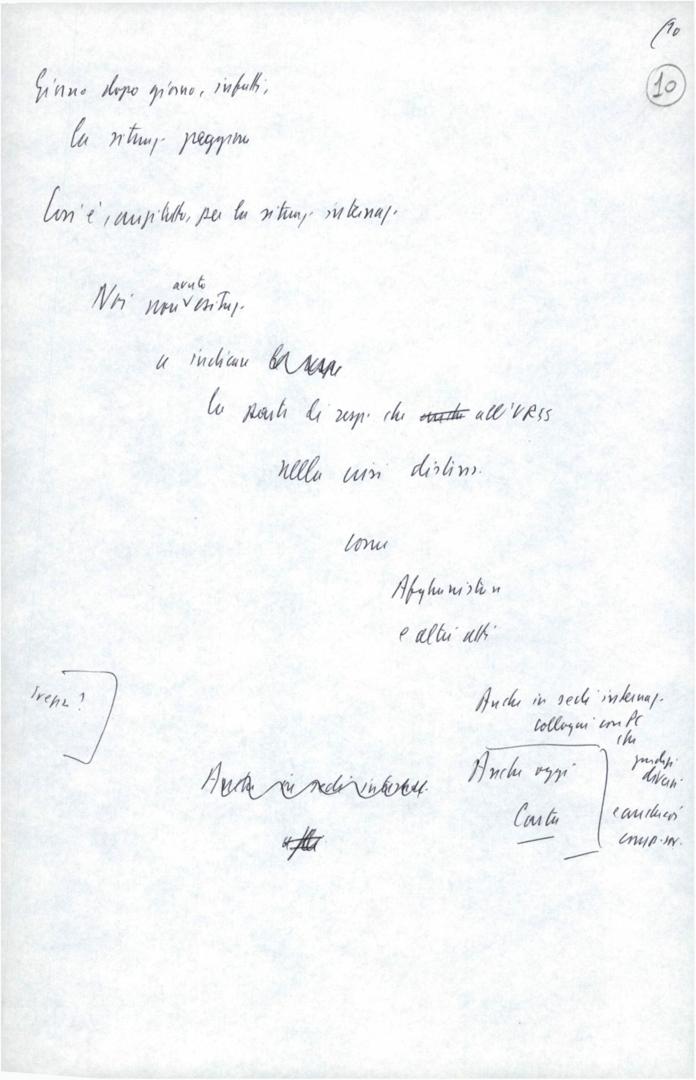 10
10
Giorno dopo giorno, infatti,
la situaz. peggiora
Così è, anzitutto, per la situaz. internaz.
avuto
Noi non esitaz.
a indicare
la parte di resp. che all'URSS
nella crisi distens.
come
Afghanistan
e altri atti
Anche in sedi internaz.
colloqui con PC
che
Anche in sedi internaz.
Anche oggi
giudizi
diversi
e anche
Costa